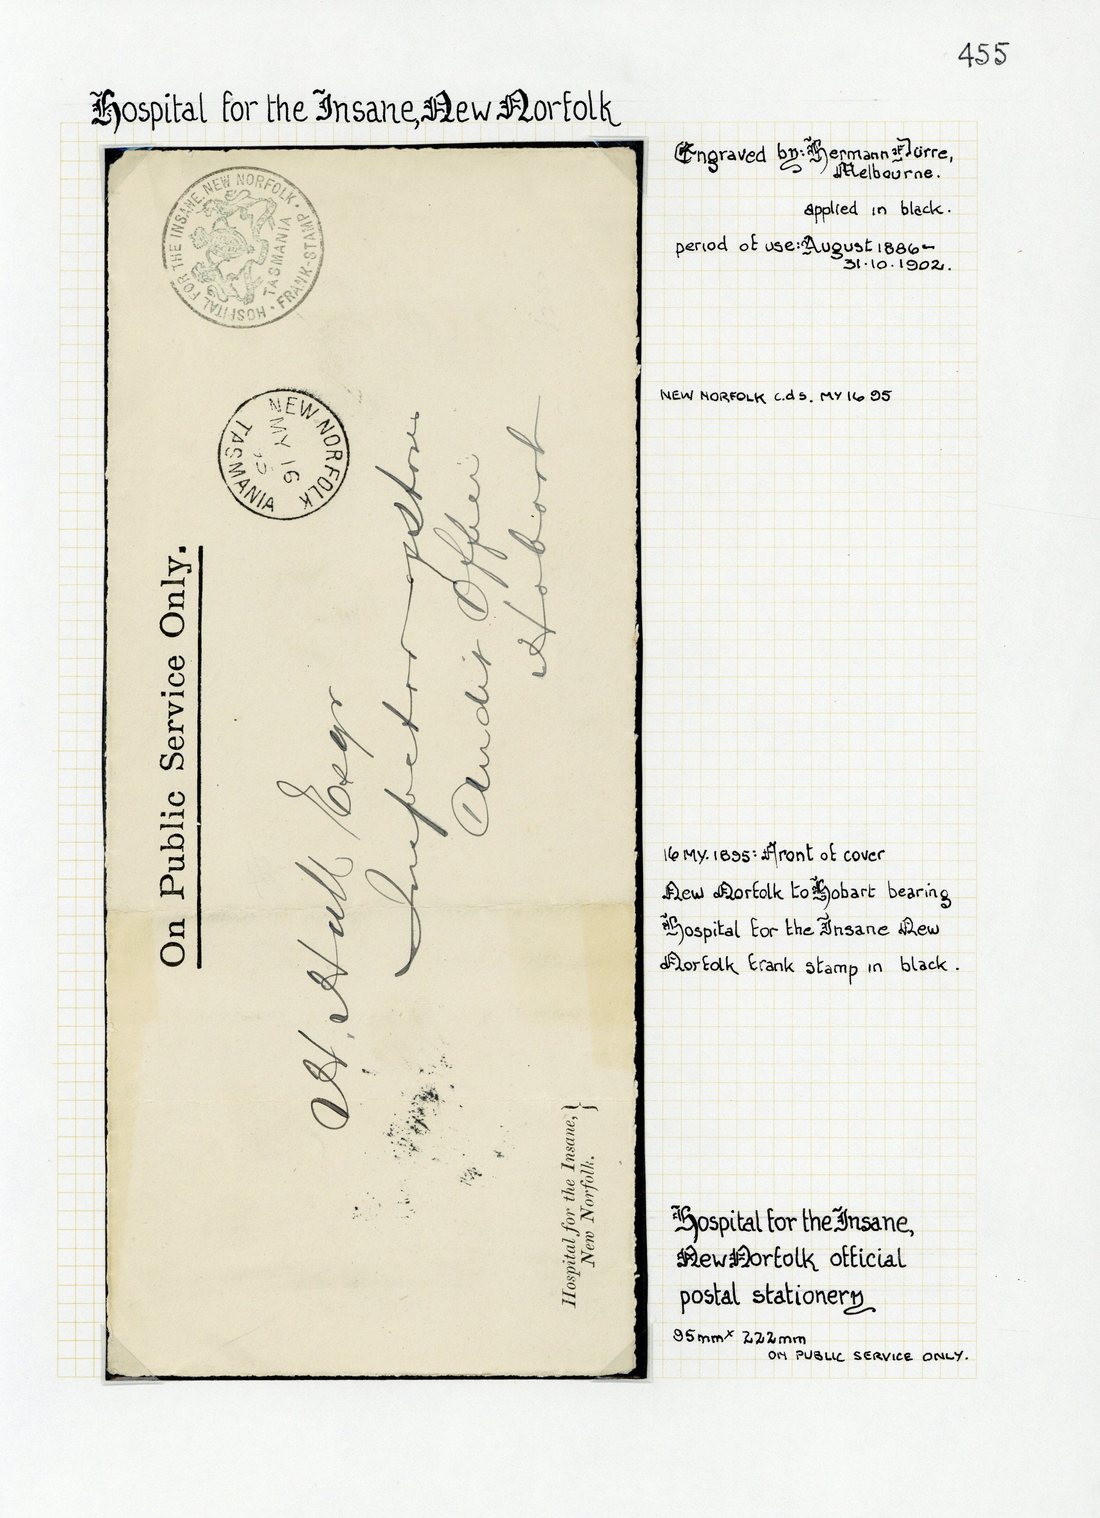 455
Hospital for the Insane, New Norfolk
Engraved by: Hermann Fürre,
Melbourne.
applied in black.
period of use: August 1886-
31.10.1902.
HOSPITAL FOR THE INSANE, NEW NORFOLK · FRANK-STAMP ·
TASMANIA
NEW NORFOLK c.d s. MY 16 95
NEW NORFOLK
MY 16
TASMANIA
On Public Service Only.
W. Hall Esqr
Inspector of Stores
Audit Office
Hobart
16 MY. 1895: Front of cover
New Norfolk to Hobart bearing
Hospital for the Insane New
Norfolk frank stamp in black.
Hospital for the Insane, }
New Norfolk.
Hospital for the Insane,
New Norfolk official
postal stationery
95mm x 222mm
ON PUBLIC SERVICE ONLY.